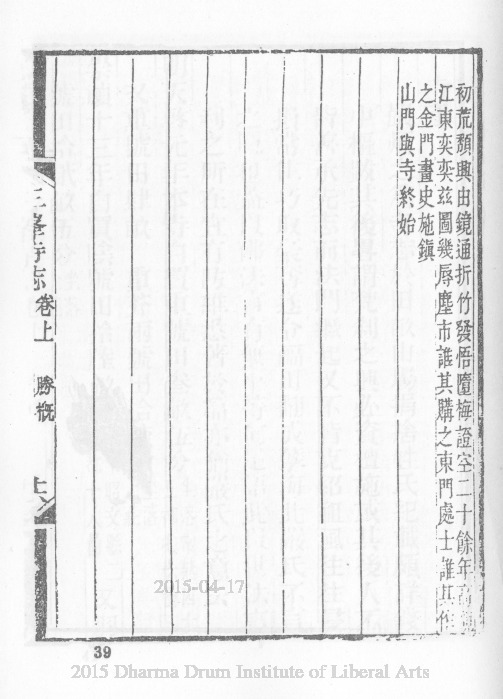 初荒頹興由鏡通折竹發悟隨梅證空二十餘年高
江東奕奕茲圖幾辱塵市誰其購之東門處士誰其作
之金門畫史施鎭
山門與寺終始
三峯寺志 卷上 勝槪
2015-04-17
39
2015 Dharma Drum Institute of Liberal Arts